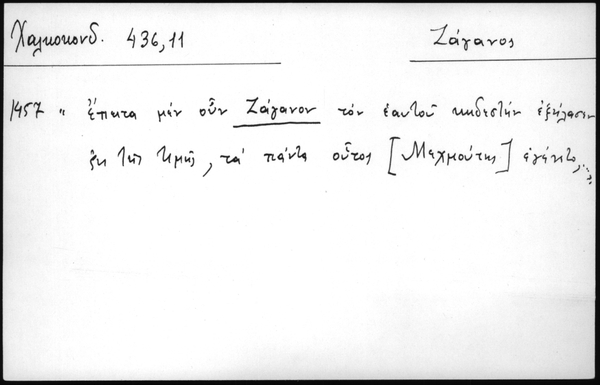 Χαλκοκονδ. 436,11 Ζάγανος
1457 " ἔπειτα μέν οὖν Ζάγανον τόν ἑαυτοῦ κηδεστήν ἐξήλασεν
ἐκ τῆς τιμῆς, τά πάντα οὗτος [Μεχμούτης] ἐγένετο,..."